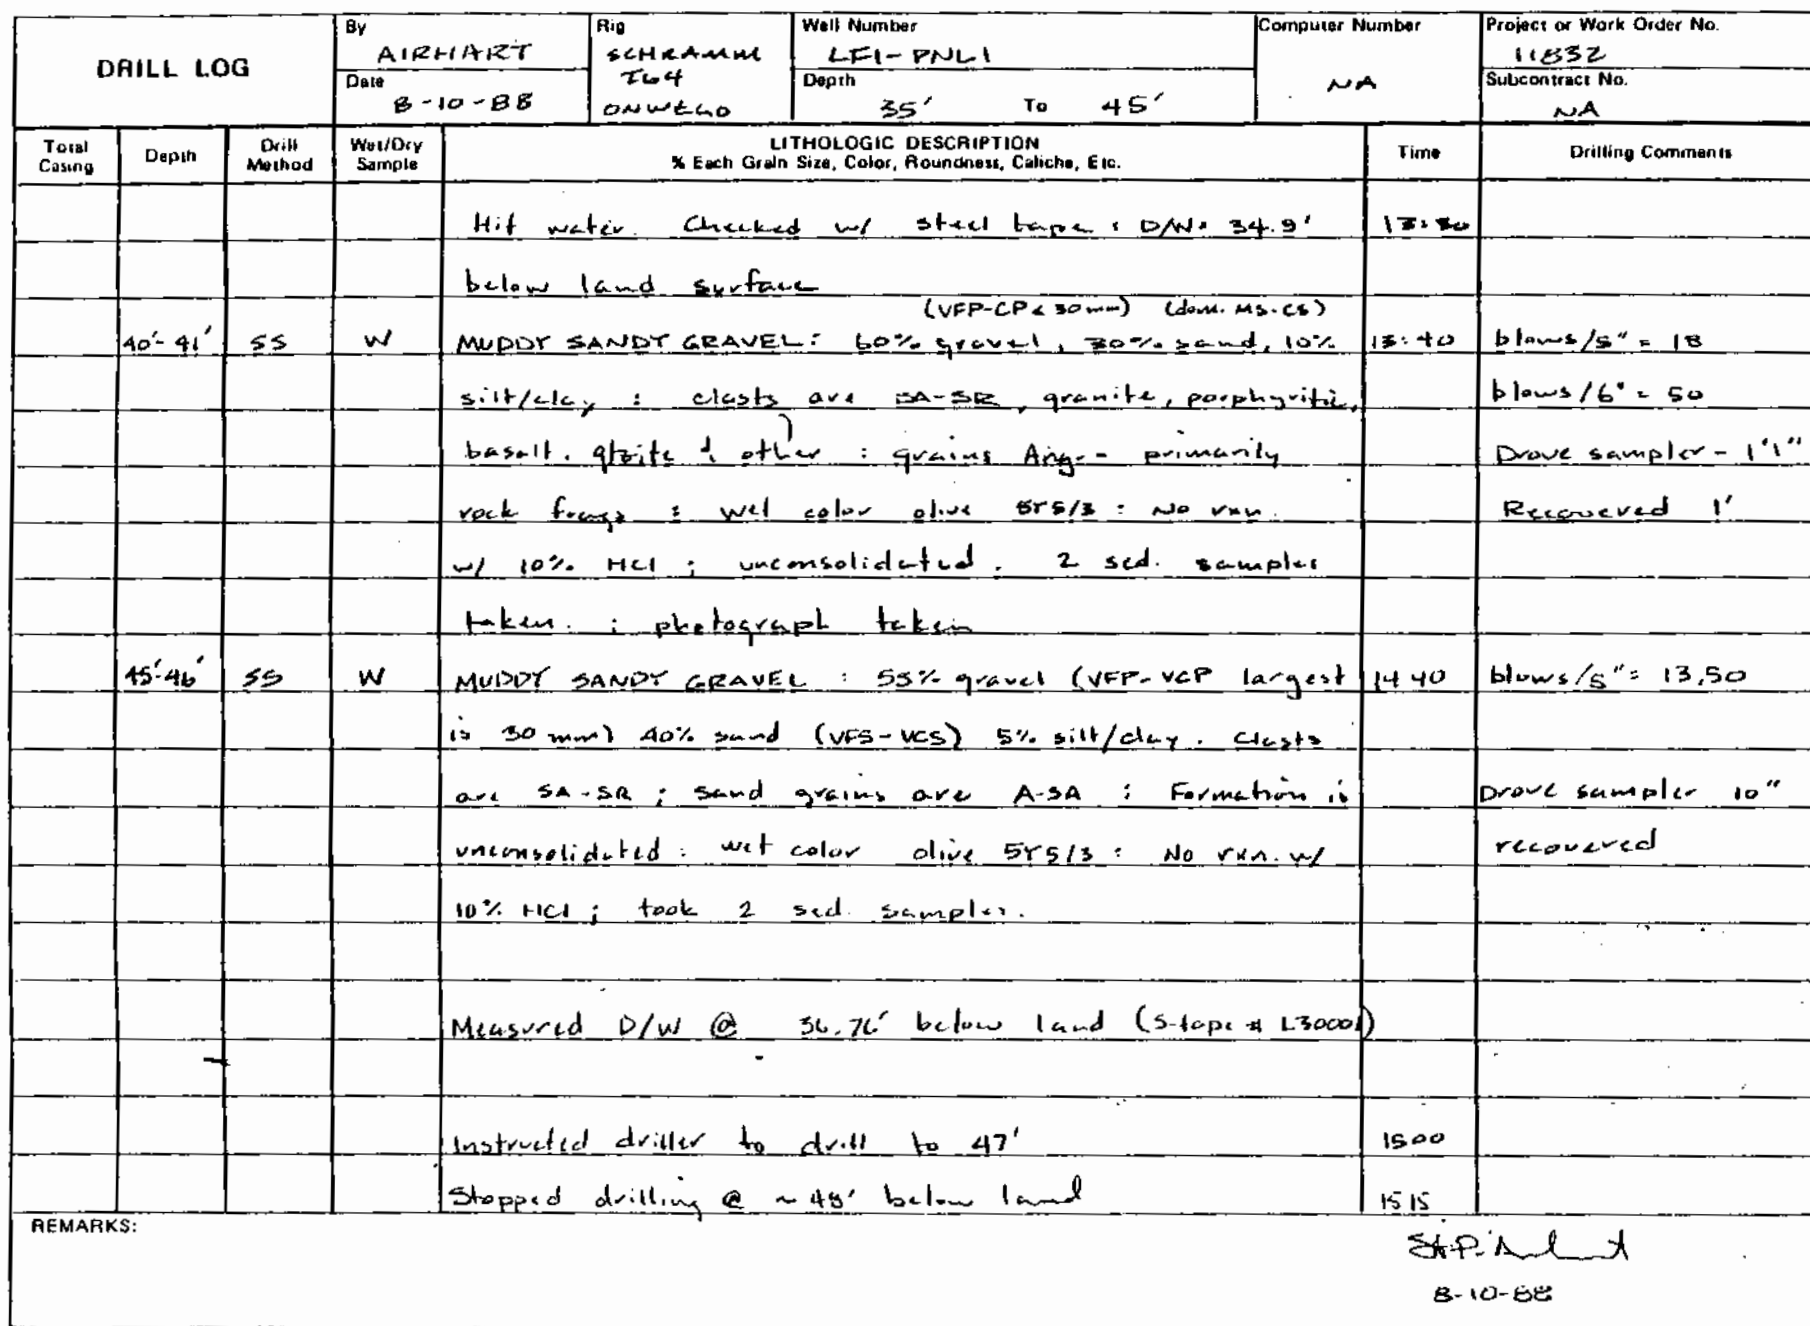 DRILL LOG
By
AIRHART
Date
8-10-88
Rig
SCHRAMM
T64
ONWEGO
Well Number
LFI-PNL1
Depth
35' To 45'
Computer Number
NA
Project or Work Order No.
11832
Subcontract No.
NA
Total Casing Depth Drill Method Wet/Dry Sample LITHOLOGIC DESCRIPTION
% Each Grain Size, Color, Roundness, Caliche, Etc. Time Drilling Comments
Hit water. Checked w/ steel tape : D/W= 34.9'
below land surface
(VFP-CP < 30mm) (dom. MS-CS)
40'-41' SS W MUDDY SANDY GRAVEL: 60% gravel, 30% sand, 10% 13:40 blows/5" = 18
silt/clay : clasts are SA-SR, granite, porphyritic, blows/6" = 50
basalt, qtzite & other : grains Ang-- primarily Drove sampler - 1'1"
rock frags : wet color olive 5Y5/3 : No rxn. Recovered 1'
w/ 10% HCl ; unconsolidated. 2 sed. samples
taken. ; photograph taken
45'-46' SS W MUDDY SANDY GRAVEL : 55% gravel (VFP-VCP largest 1440 blows/5" = 13,50
is 30 mm) 40% sand (VFS-VCS) 5% silt/clay. Clasts
are SA-SR ; sand grains are A-SA : Formation is Drove sampler 10"
unconsolidated : wet color olive 5Y5/3 : No rxn. w/ recovered
10% HCl ; took 2 sed. samples.
Measured D/W @ 36.76' below land (S-tape # L30001)
Instructed driller to drill to 47' 1500
Stopped drilling @ ~ 48' below land 1515
REMARKS:
8-10-88